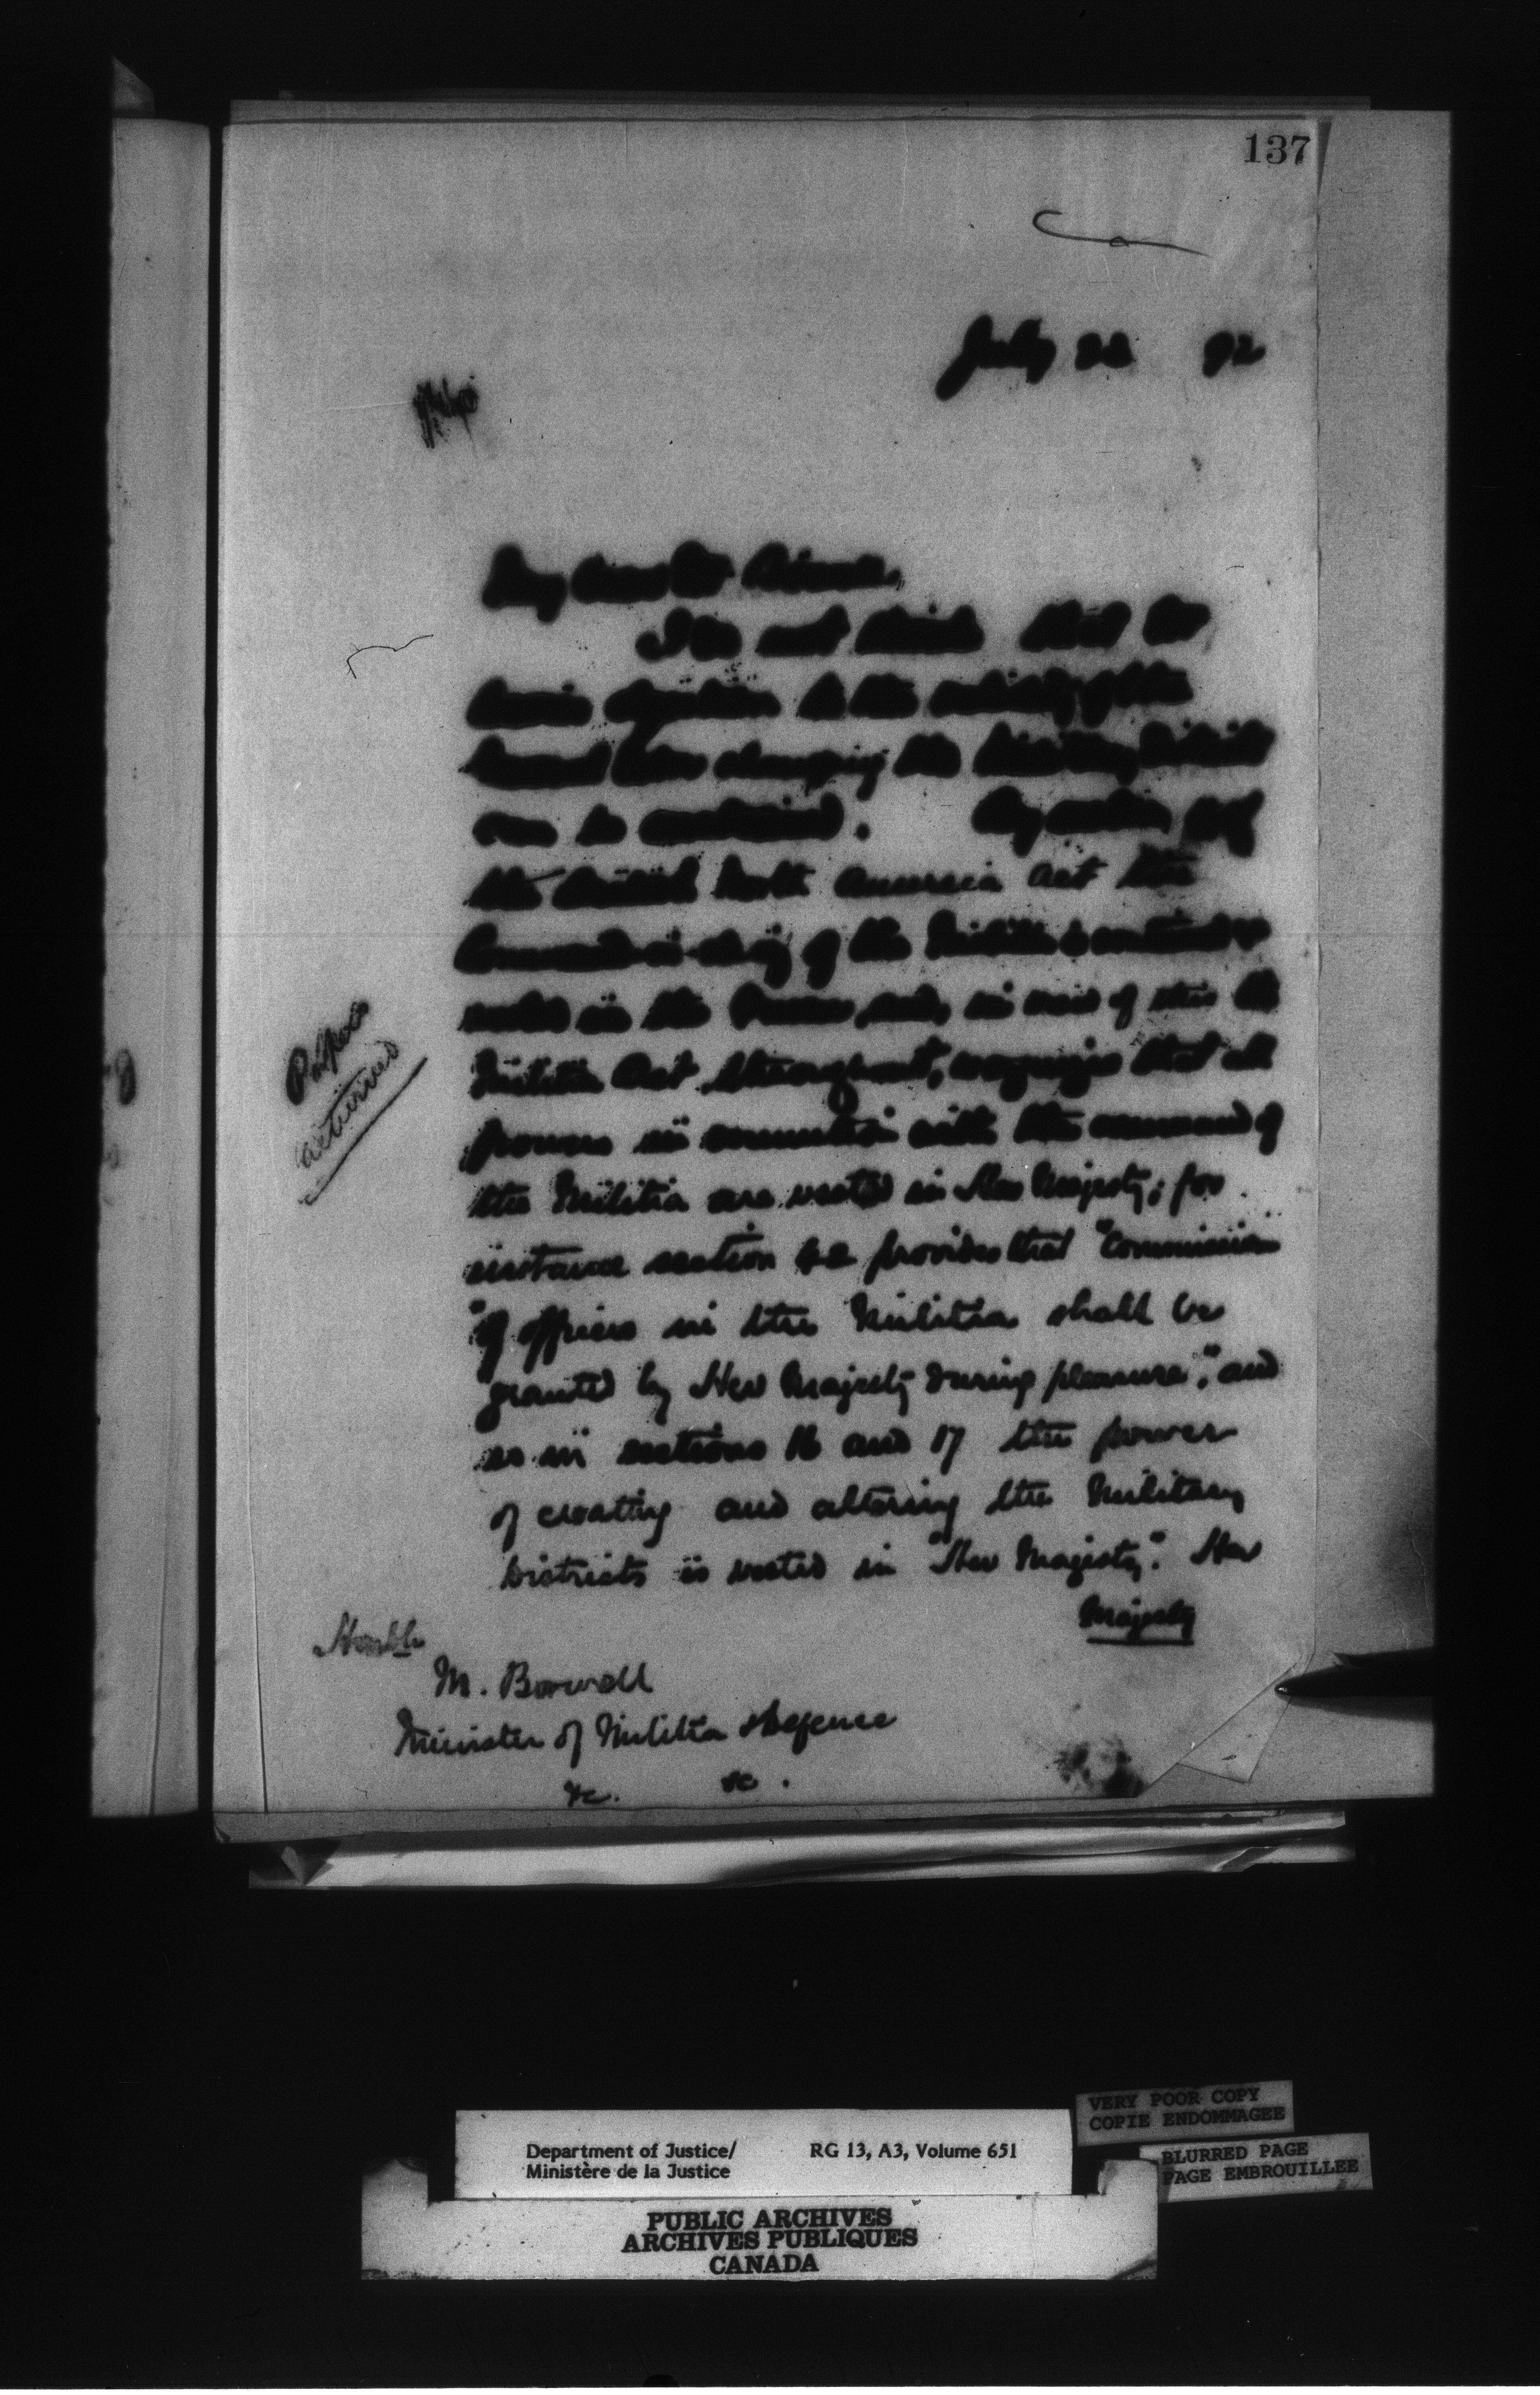 137
July 22 92
My dear
I do not think that
to the validity of the
changing the Military Districts
can be By section
the British North America Act the
Command-in-chief of the Militia is continued &
vested in the Queen and, in view of this the
Militia Act throughout, recognizes that all
powers in connection with the command of
the Militia are vested in Her Majesty; for
instance section provides that "Commissions
"of officers in the Militia shall be
granted by Her Majesty during pleasure", and
so in sections 16 and 17 the power
of creating and altering the Military
Districts is vested in "Her Majesty". Her
Majesty
Papers
returned
Honble
M. Bowell
Minister of Militia & Defence
&c. &c.
VERY POOR COPY
COPIE ENDOMMAGEE
Department of Justice/ RG 13, A3, Volume 651
Ministère de la Justice
BLURRED PAGE
PAGE EMBROUILLEE
PUBLIC ARCHIVES
ARCHIVES PUBLIQUES
CANADA